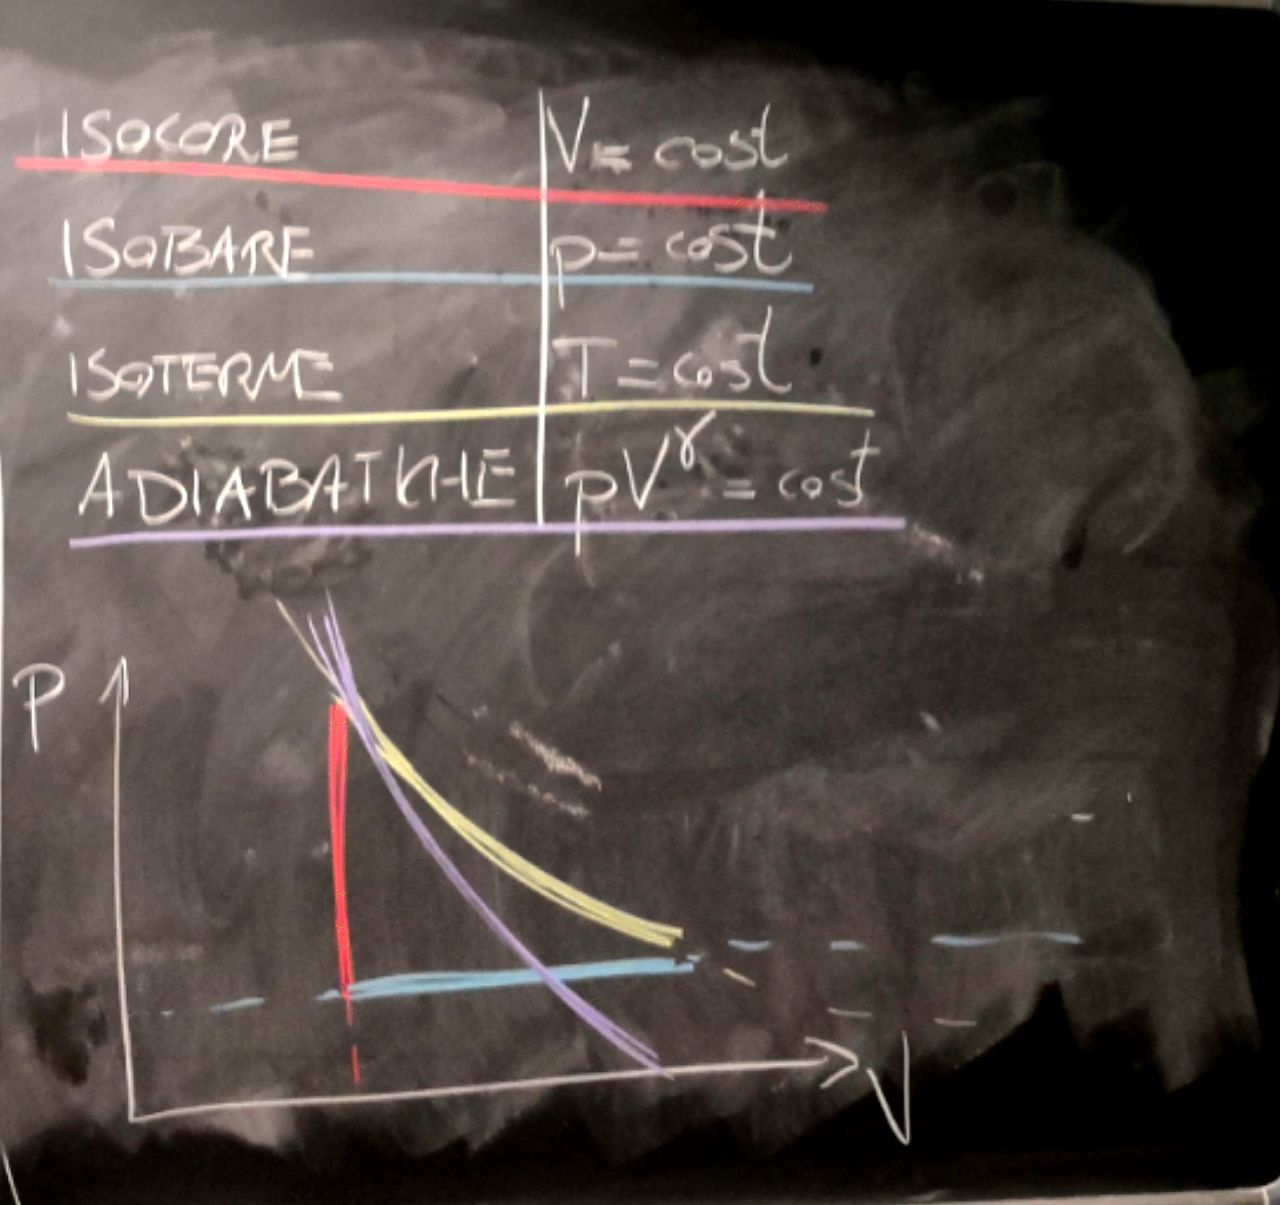 ISOCORE V = cost
ISOBARE p = cost
ISOTERME T = cost
ADIABATICHE pV^γ = cost
P
V